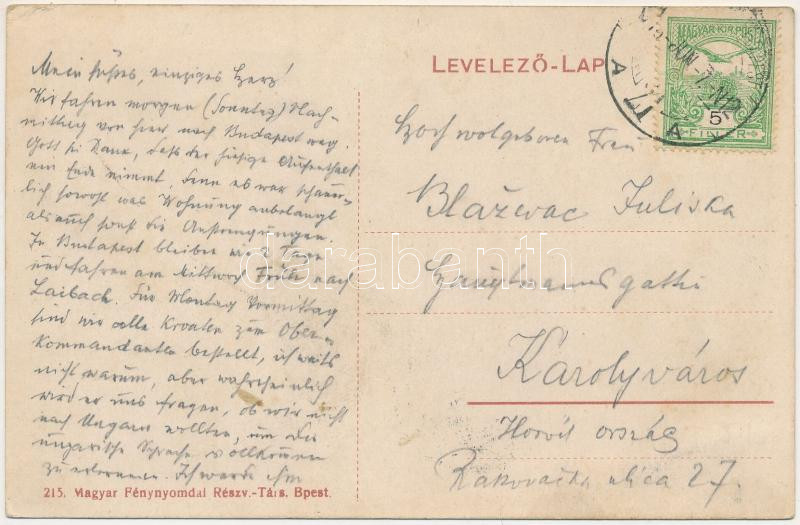 Mein süßes, einziges Herz!
Wir fahren morgen (Sonntag) Nach-
mittag von hier nach Budapest weg.
Gott sei Dank, daß der hiesige Aufenthalt
ein Ende nimmt, denn es war schauer-
lich sowohl was Wohnung anbelangt
als auch sonst die Anstrengungen.
In Budapest bleiben wir 2 Tage
und fahren am Mittwoch Früh nach
Laibach. Für Montag Vormittag
sind wir alle Kroaten zum Ober-
kommandanten bestellt, ich weiß
nicht warum, aber wahrscheinlich
wird er uns fragen, ob wir nicht
nach Ungarn wollten, um die
ungarische Sprache vollkommen
zu erlernen. Ich werde ihm
215. Magyar Fénynyomdai Részv.-Társ. Bpest.
LEVELEZŐ-LAP
MAGYAR KIR. POSTA
5
FILLÉR
Hochwolgeboren Frau
Blaževac Juliska
Hauptmannsgattin
Károlyváros
Horvát ország
Rakovačka ulica 27.
darabanth